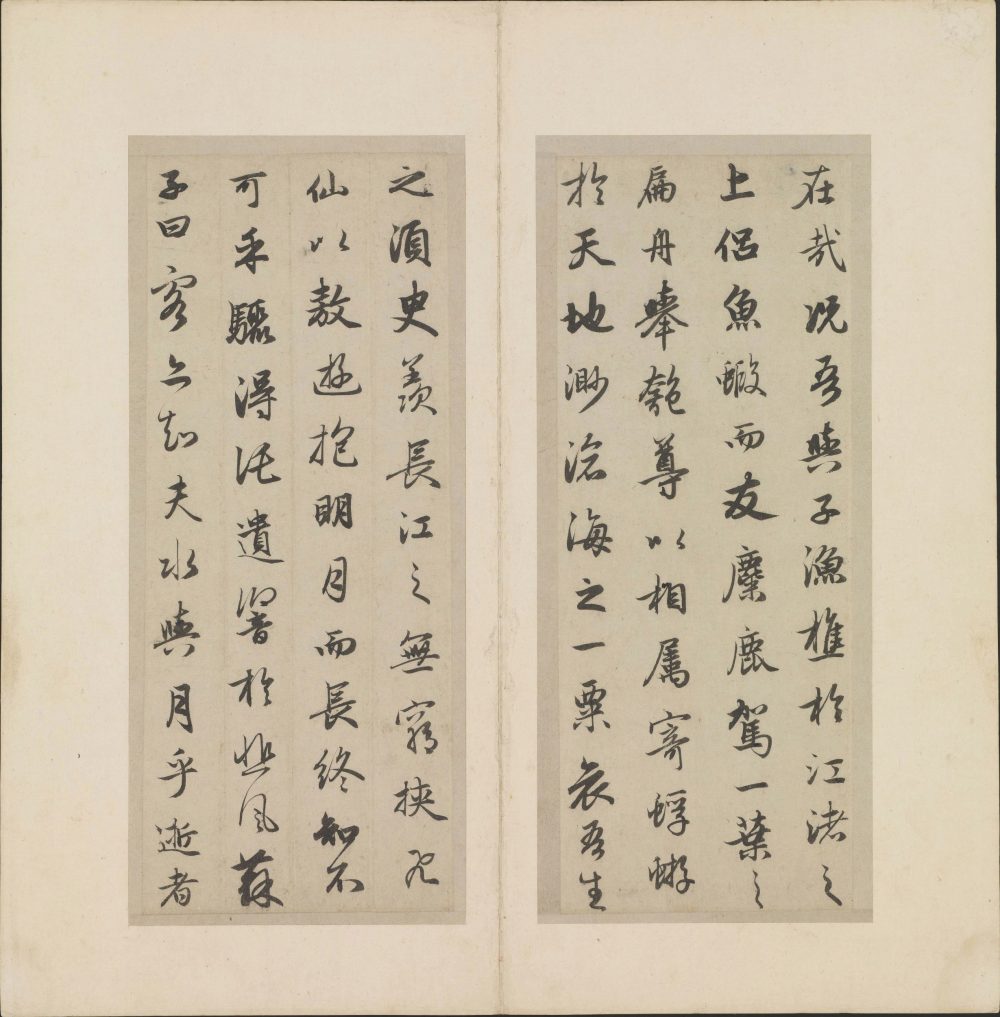 在哉況吾與子漁樵於江渚之
上侶魚蝦而友麋鹿駕一葉之
扁舟舉匏尊以相属寄蜉蝣
於天地渺滄海之一粟哀吾生
之須臾羨長江之無窮挾飛
仙以敖遊抱明月而長終知不
可乎驟得託遺響於悲風蘇
子曰客亦知夫水與月乎逝者